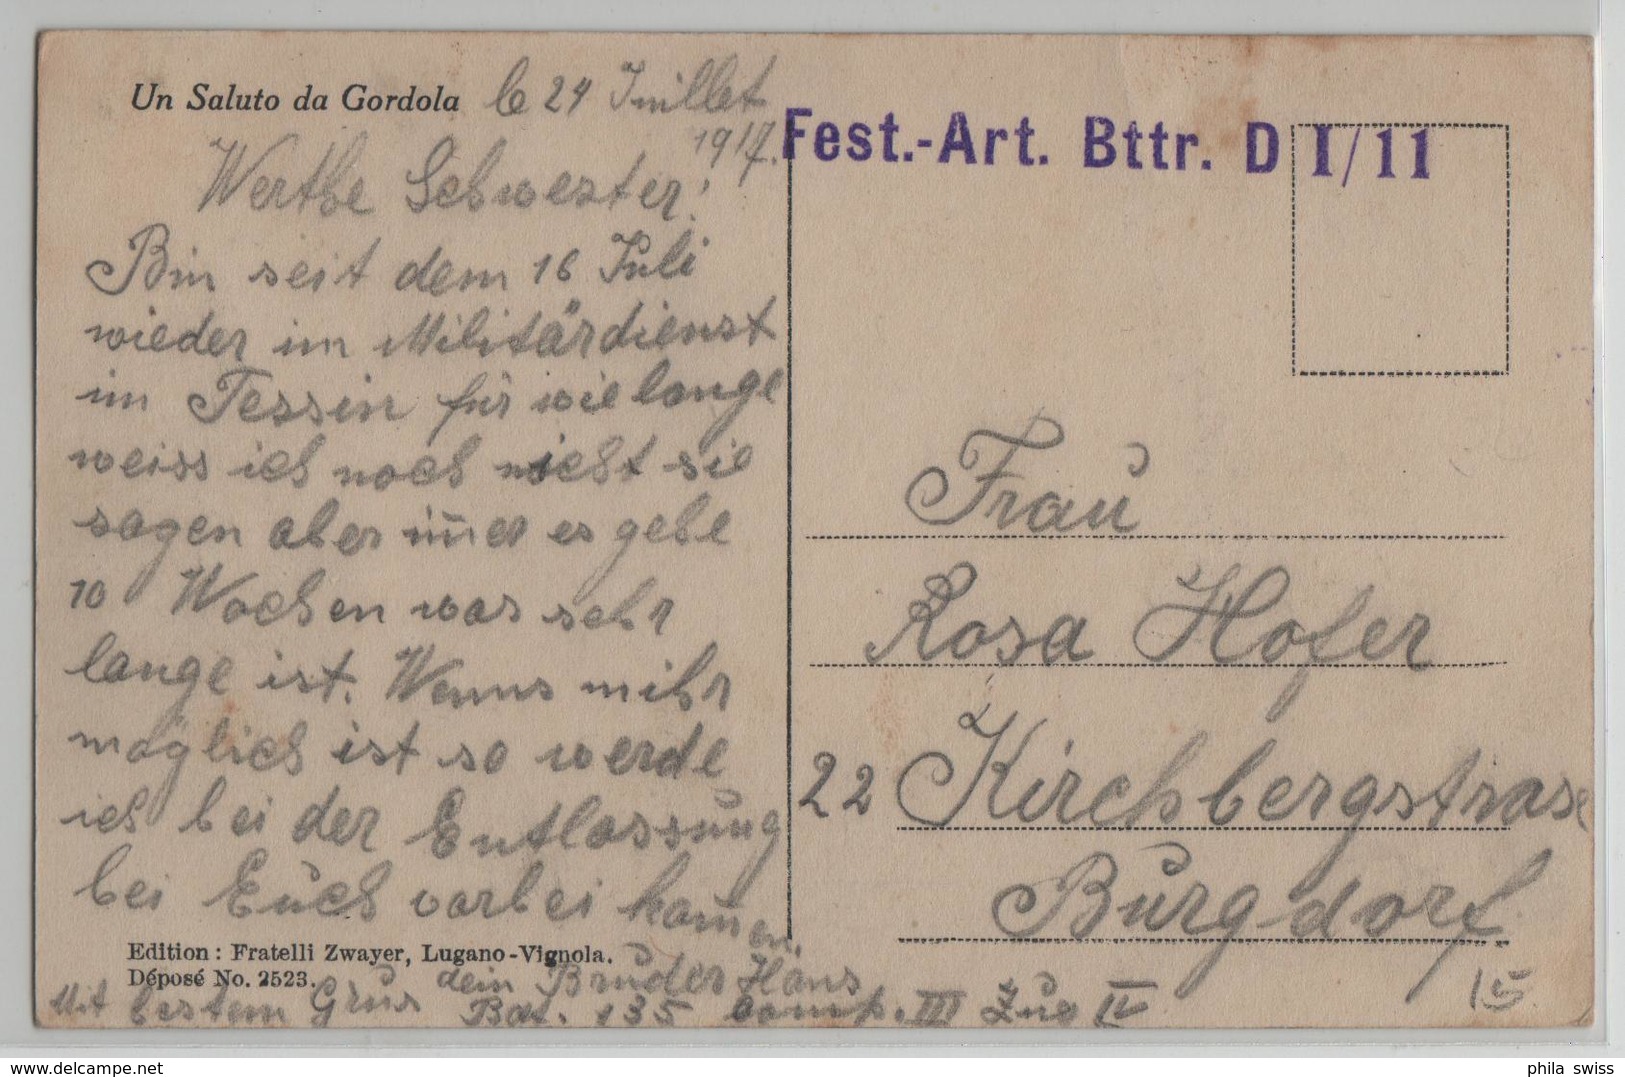 Un Saluto da Gordola le 24 Juillet
1917.
Fest.-Art. Bttr. D I/11
Werthe Schwester!
Bin seit dem 16 Juli
wieder im Militärdienst
im Tessin für wie lange
weiss ich noch nicht sie
sagen aber im̄er es gebe
10 Wochen was sehr
lange ist. Wenns mihr
möglich ist so werde
ich bei der Entlassung
bei Euch vorbei kom̄en.
Edition: Fratelli Zwayer, Lugano-Vignola.
Déposé No. 2523.
dein Bruder Hans
Mit bestem Grus Bat. 135 Comp. III Zug IV
Frau
Rosa Hofer
22 Kirchbergstrase
Burgdorf
15
delcampe.net
phila swiss